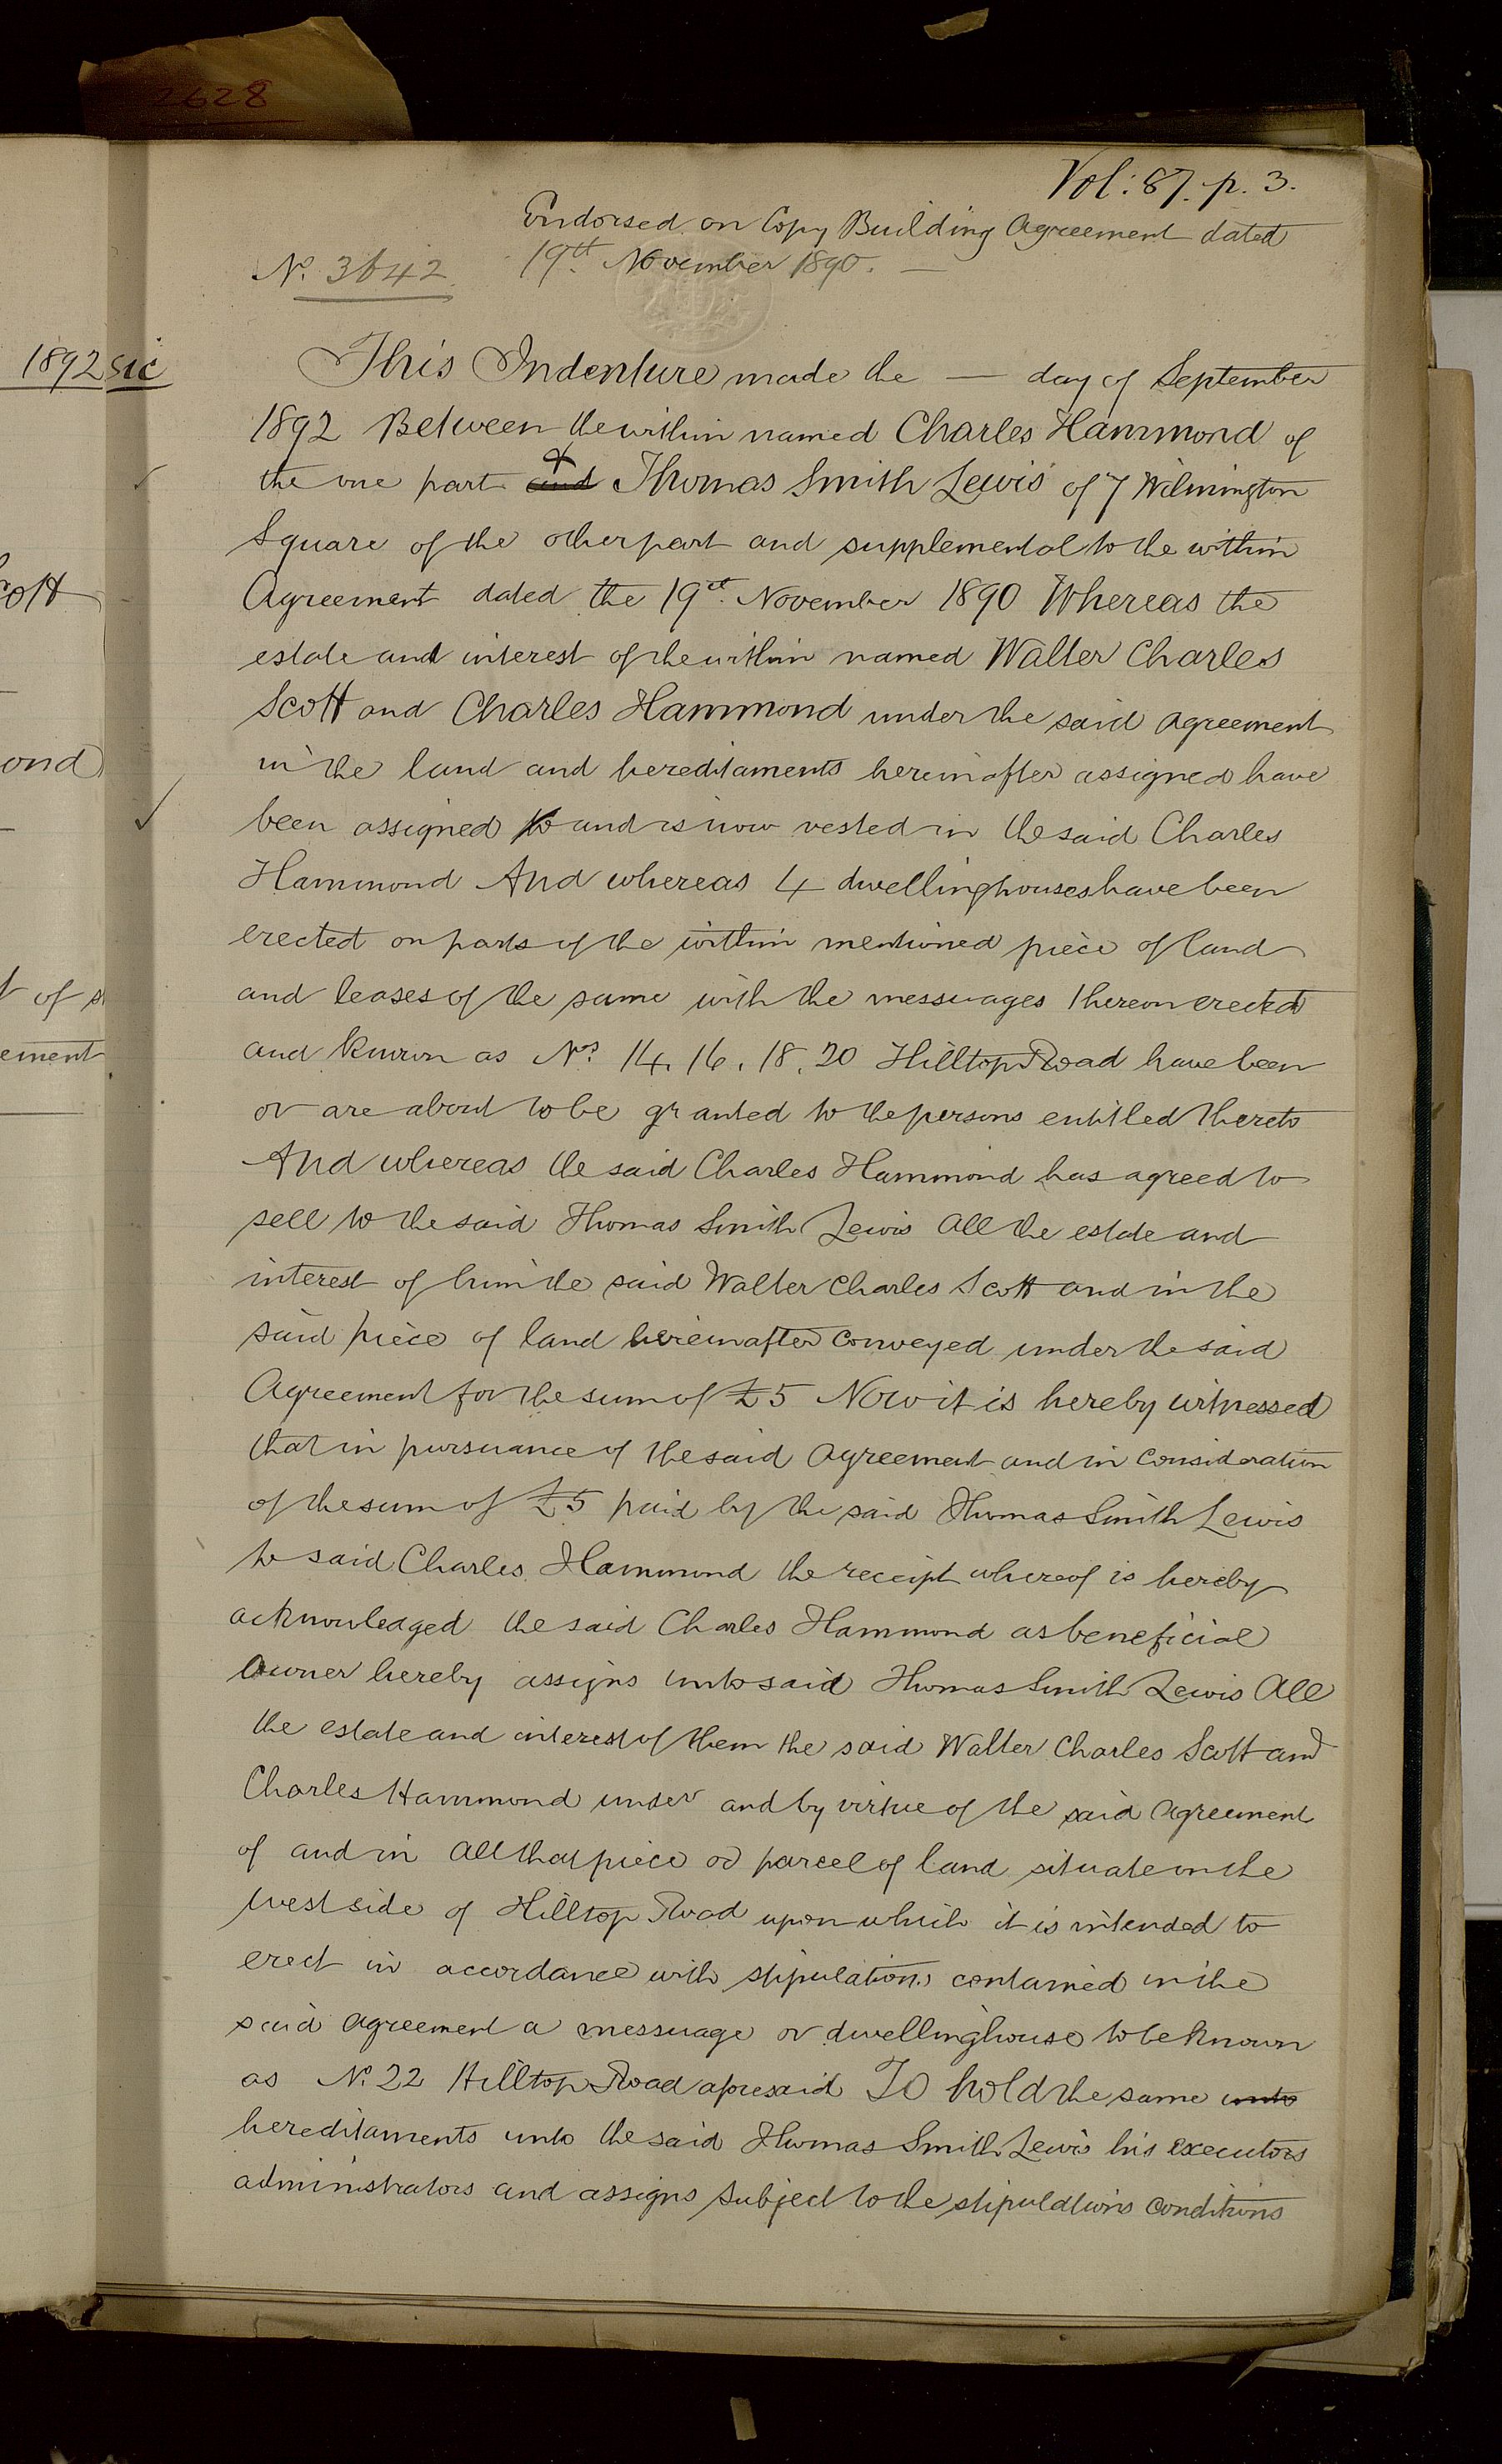 2628
Vol: 87. p. 3.
Endorsed on Copy Building Agreement dated
19th November 1890. —
No. 3642
1892 sic
This Indenture made the — day of September
1892 Between the within named Charles Hammond of
the one part and & Thomas Smith Lewis of 7 Wilmington
Square of the other part and supplemental to the within
Agreement dated the 19th November 1890 Whereas the
estate and interest of the within named Walter Charles
Scott and Charles Hammond under the said agreement
in the land and hereditaments hereinafter assigned have
been assigned to and is now vested in the said Charles
Hammond And whereas 4 dwellinghouses have been
erected on parts of the within mentioned piece of land
and leases of the same with the messuages thereon erected
and known as Nos. 14. 16. 18. 20 Hilltop Road have been
or are about to be granted to the persons entitled thereto
And whereas the said Charles Hammond has agreed to
sell to the said Thomas Smith Lewis all the estate and
interest of him the said Walter Charles Scott and in the
said piece of land hereinafter conveyed under the said
Agreement for the sum of £5 Now it is hereby witnessed
that in pursuance of the said agreement and in consideration
of the sum of £5 paid by the said Thomas Smith Lewis
to said Charles Hammond the receipt whereof is hereby
acknowledged the said Charles Hammond as beneficial
Owner hereby assigns unto said Thomas Smith Lewis All
the estate and interest of them the said Walter Charles Scott and
Charles Hammond under and by virtue of the said agreement
of and in all that piece or parcel of land situate on the
west side of Hilltop Road upon which it is intended to
erect in accordance with stipulations contained in the
said agreement a messuage or dwellinghouse to be known
as No. 22 Hilltop Road aforesaid To hold the same unto
hereditaments unto the said Thomas Smith Lewis his executors
administrators and assigns subject to the stipulations conditions
cott
ond
t of
ement